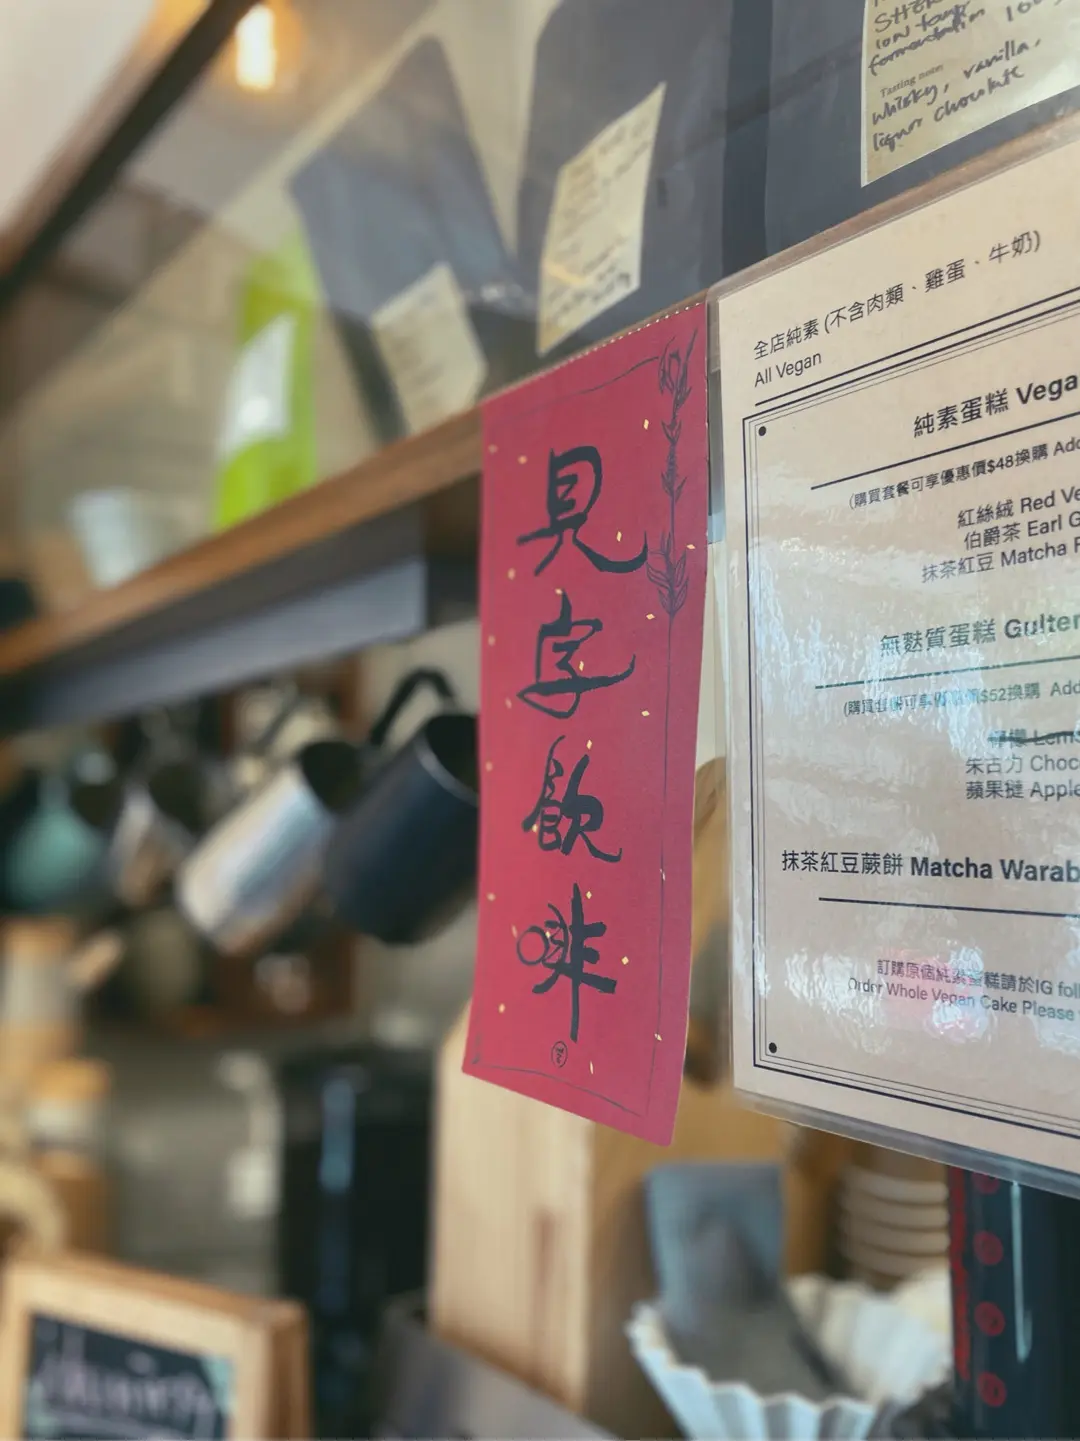 whisky, vanilla,
liquor chocolate
Tasting notes
見字飲啡
全店純素 (不含肉類、雞蛋、牛奶)
All Vegan
純素蛋糕 Vega
(購買套餐可享優惠價$48換購 Add
紅絲絨 Red Ve
伯爵茶 Earl G
抹茶紅豆 Matcha R
無麩質蛋糕 Gulten
(購買套餐可享優惠價$52換購 Add
檸檬 Lem
朱古力 Choc
蘋果撻 Apple
抹茶紅豆蕨餅 Matcha Warab
訂購原個純素蛋糕請於IG foll
Order Whole Vegan Cake Please